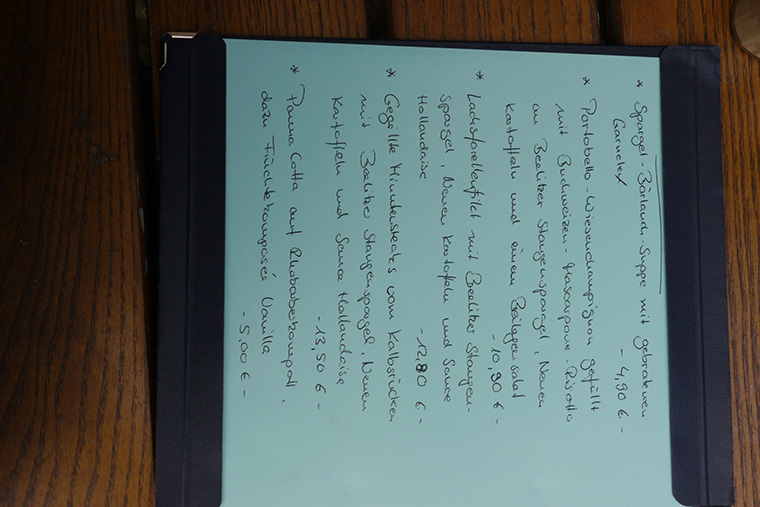 * Spargel-Bärlauch-Suppe mit gebratenen
Garnelen
- 4,90 € -
* Portobello-Wiesenchampignon gefüllt
mit Buchweizen-Mascarpone-Risotto
an Beelitzer Stangenspargel, Neuen
Kartoffeln und einem Beilagensalat
- 10,90 € -
* Lachsforellenfilet mit Beelitzer Stangen-
spargel, Neuen Kartoffeln und Sauce
Hollandaise
- 12,80 € -
* Gegrillte Minutensteaks vom Kalbsrücken
mit Beelitzer Stangenspargel, Neuen
Kartoffeln und Sauce Hollandaise
- 13,50 € -
* Panna Cotta auf Rhabarberkompott,
dazu Vanilla
- 5,00 € -